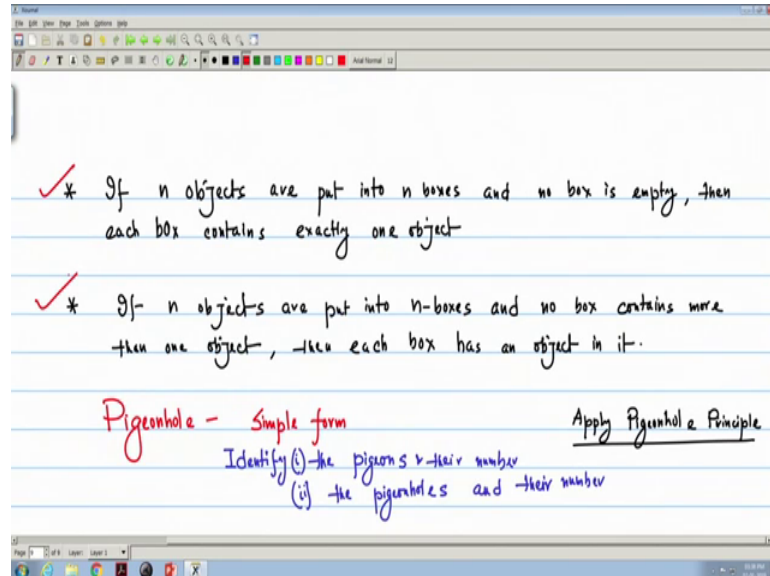 Journal
File Edit View Page Tools Options Help
Arial Normal 12
* If n objects are put into n boxes and no box is empty, then
each box contains exactly one object
* If n objects are put into n-boxes and no box contains more
than one object, then each box has an object in it.
Pigeonhole - Simple form
Apply Pigeonhole Principle
Identify (i) the pigeons & their number
(ii) the pigeonholes and their number
Page of 9 Layer: Layer 1